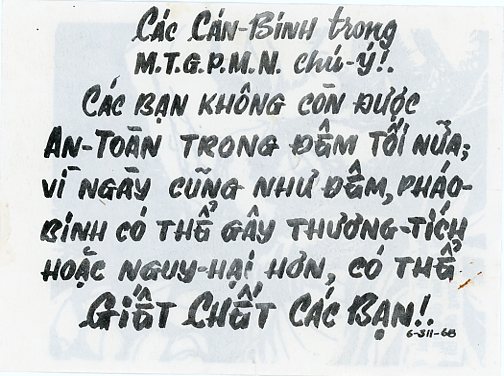 Các CÁN-BÍNH trong
M.T.G.P.M.N. chú-ý!.
CÁC BẠN KHÔNG CÒN ĐƯỢC
AN-TOÀN TRONG ĐÊM TỐI NỬA;
VÌ NGÀY CŨNG NHƯ ĐÊM, PHÁO-
BINH CÓ THỂ GÂY THƯƠNG-TÍCH
HOẶC NGUY-HẠI HƠN, CÓ THỂ
GIẾT CHẾT CÁC BẠN!.
6-311-68